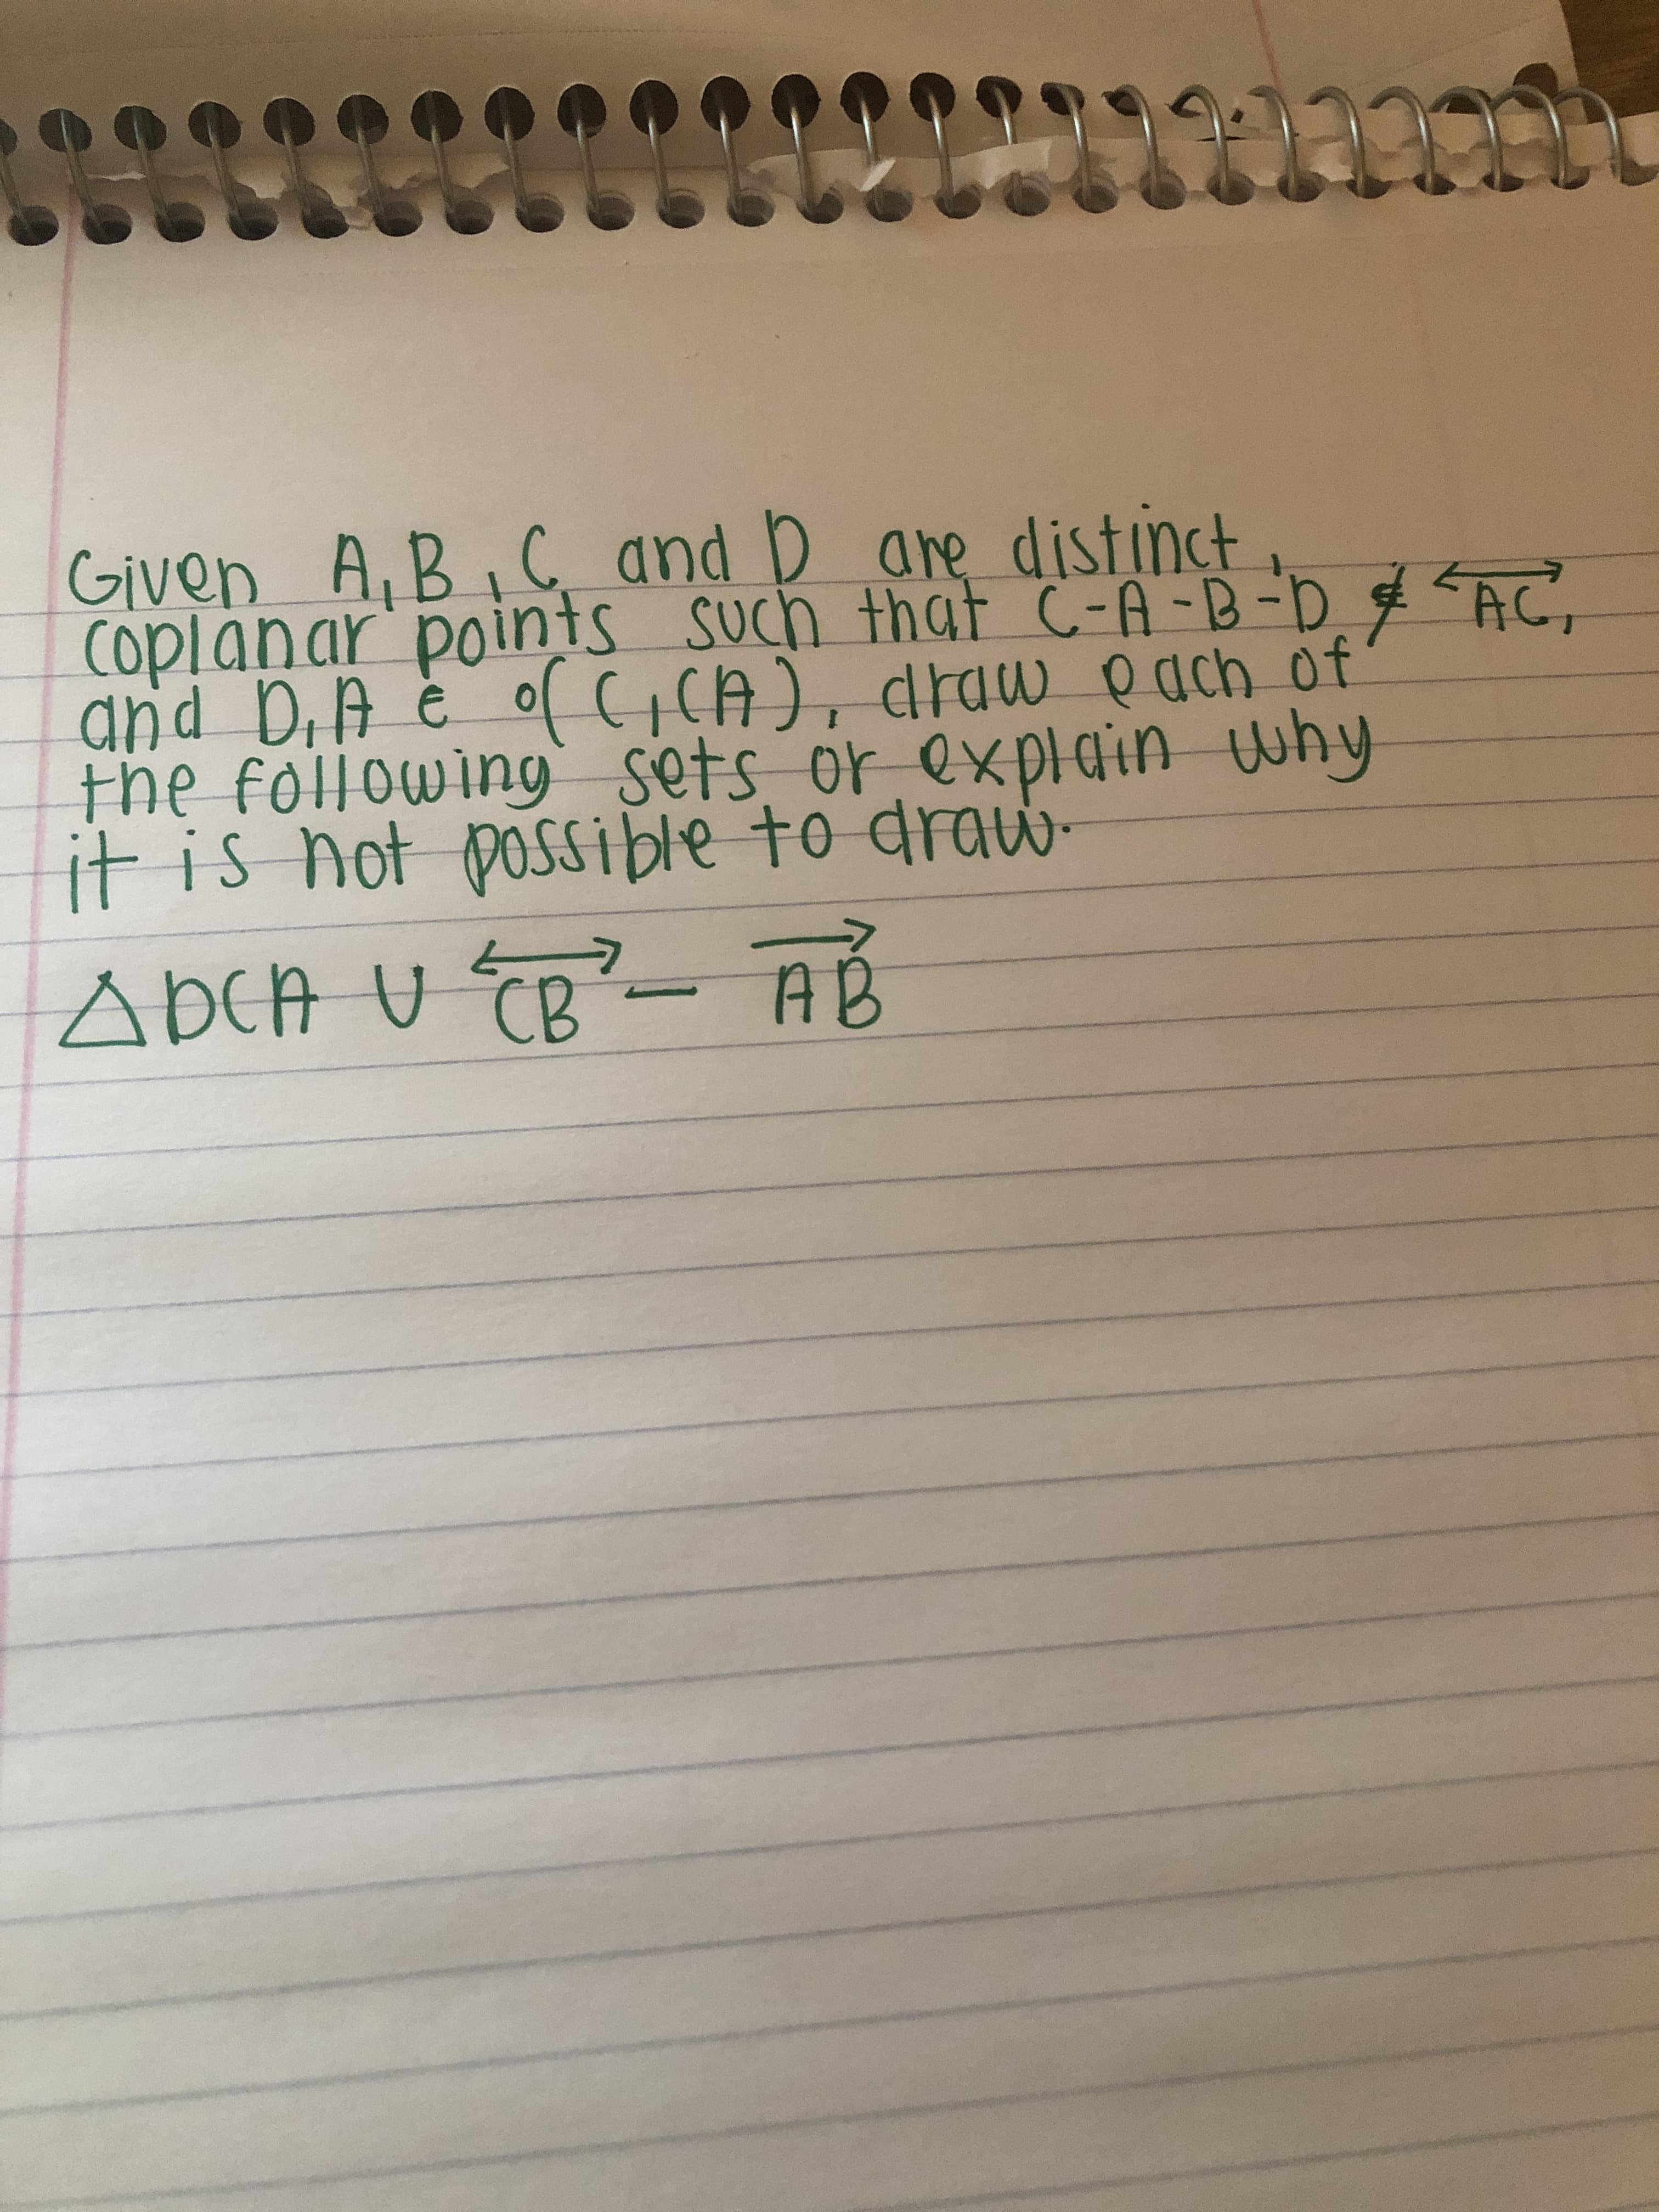 Given A, B, C and D are distinct,
coplanar points such that C-A-B-D ∉ ↔AC,
and D,A ∈ o(C,CA), draw each of
the following sets or explain why
it is not possible to draw.
△DCA ∪ ↔CB — →AB